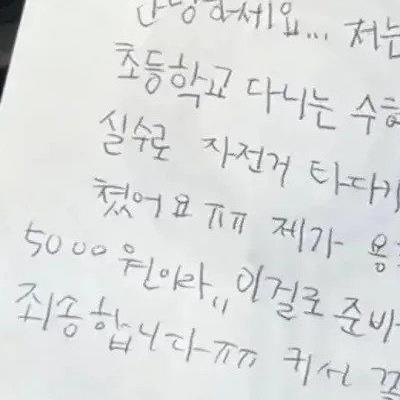 안녕하세요... 저는
초등학교 다니는
실수로 자전거 타다가
쳤어요 ㅠㅠ 제가 용
5000원이라,, 이걸로 준비
죄송합니다ㅠㅠ 커서 꼭